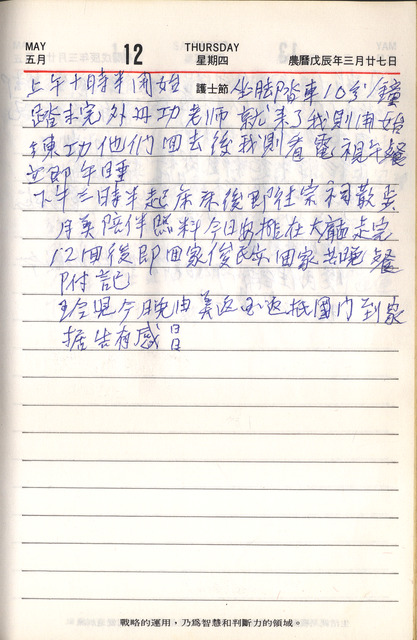 MAY 12 THURSDAY
五月 星期四 農曆戊辰年三月廿七日
護士節
上午十時半開始坐脚踏車10分鐘
踏未完外丹功老师就来了我則開始
練功他們回去後我則看電視午餐
立即午睡
下午三時半起床床後即往宗祠散步
月美陪伴照料今日安排在大廳走完
12回後即回家俊民亦回家共晚餐
附記
今晚由美返國門到家
据告有感
戰略的運用，乃為智慧和判斷力的領域。